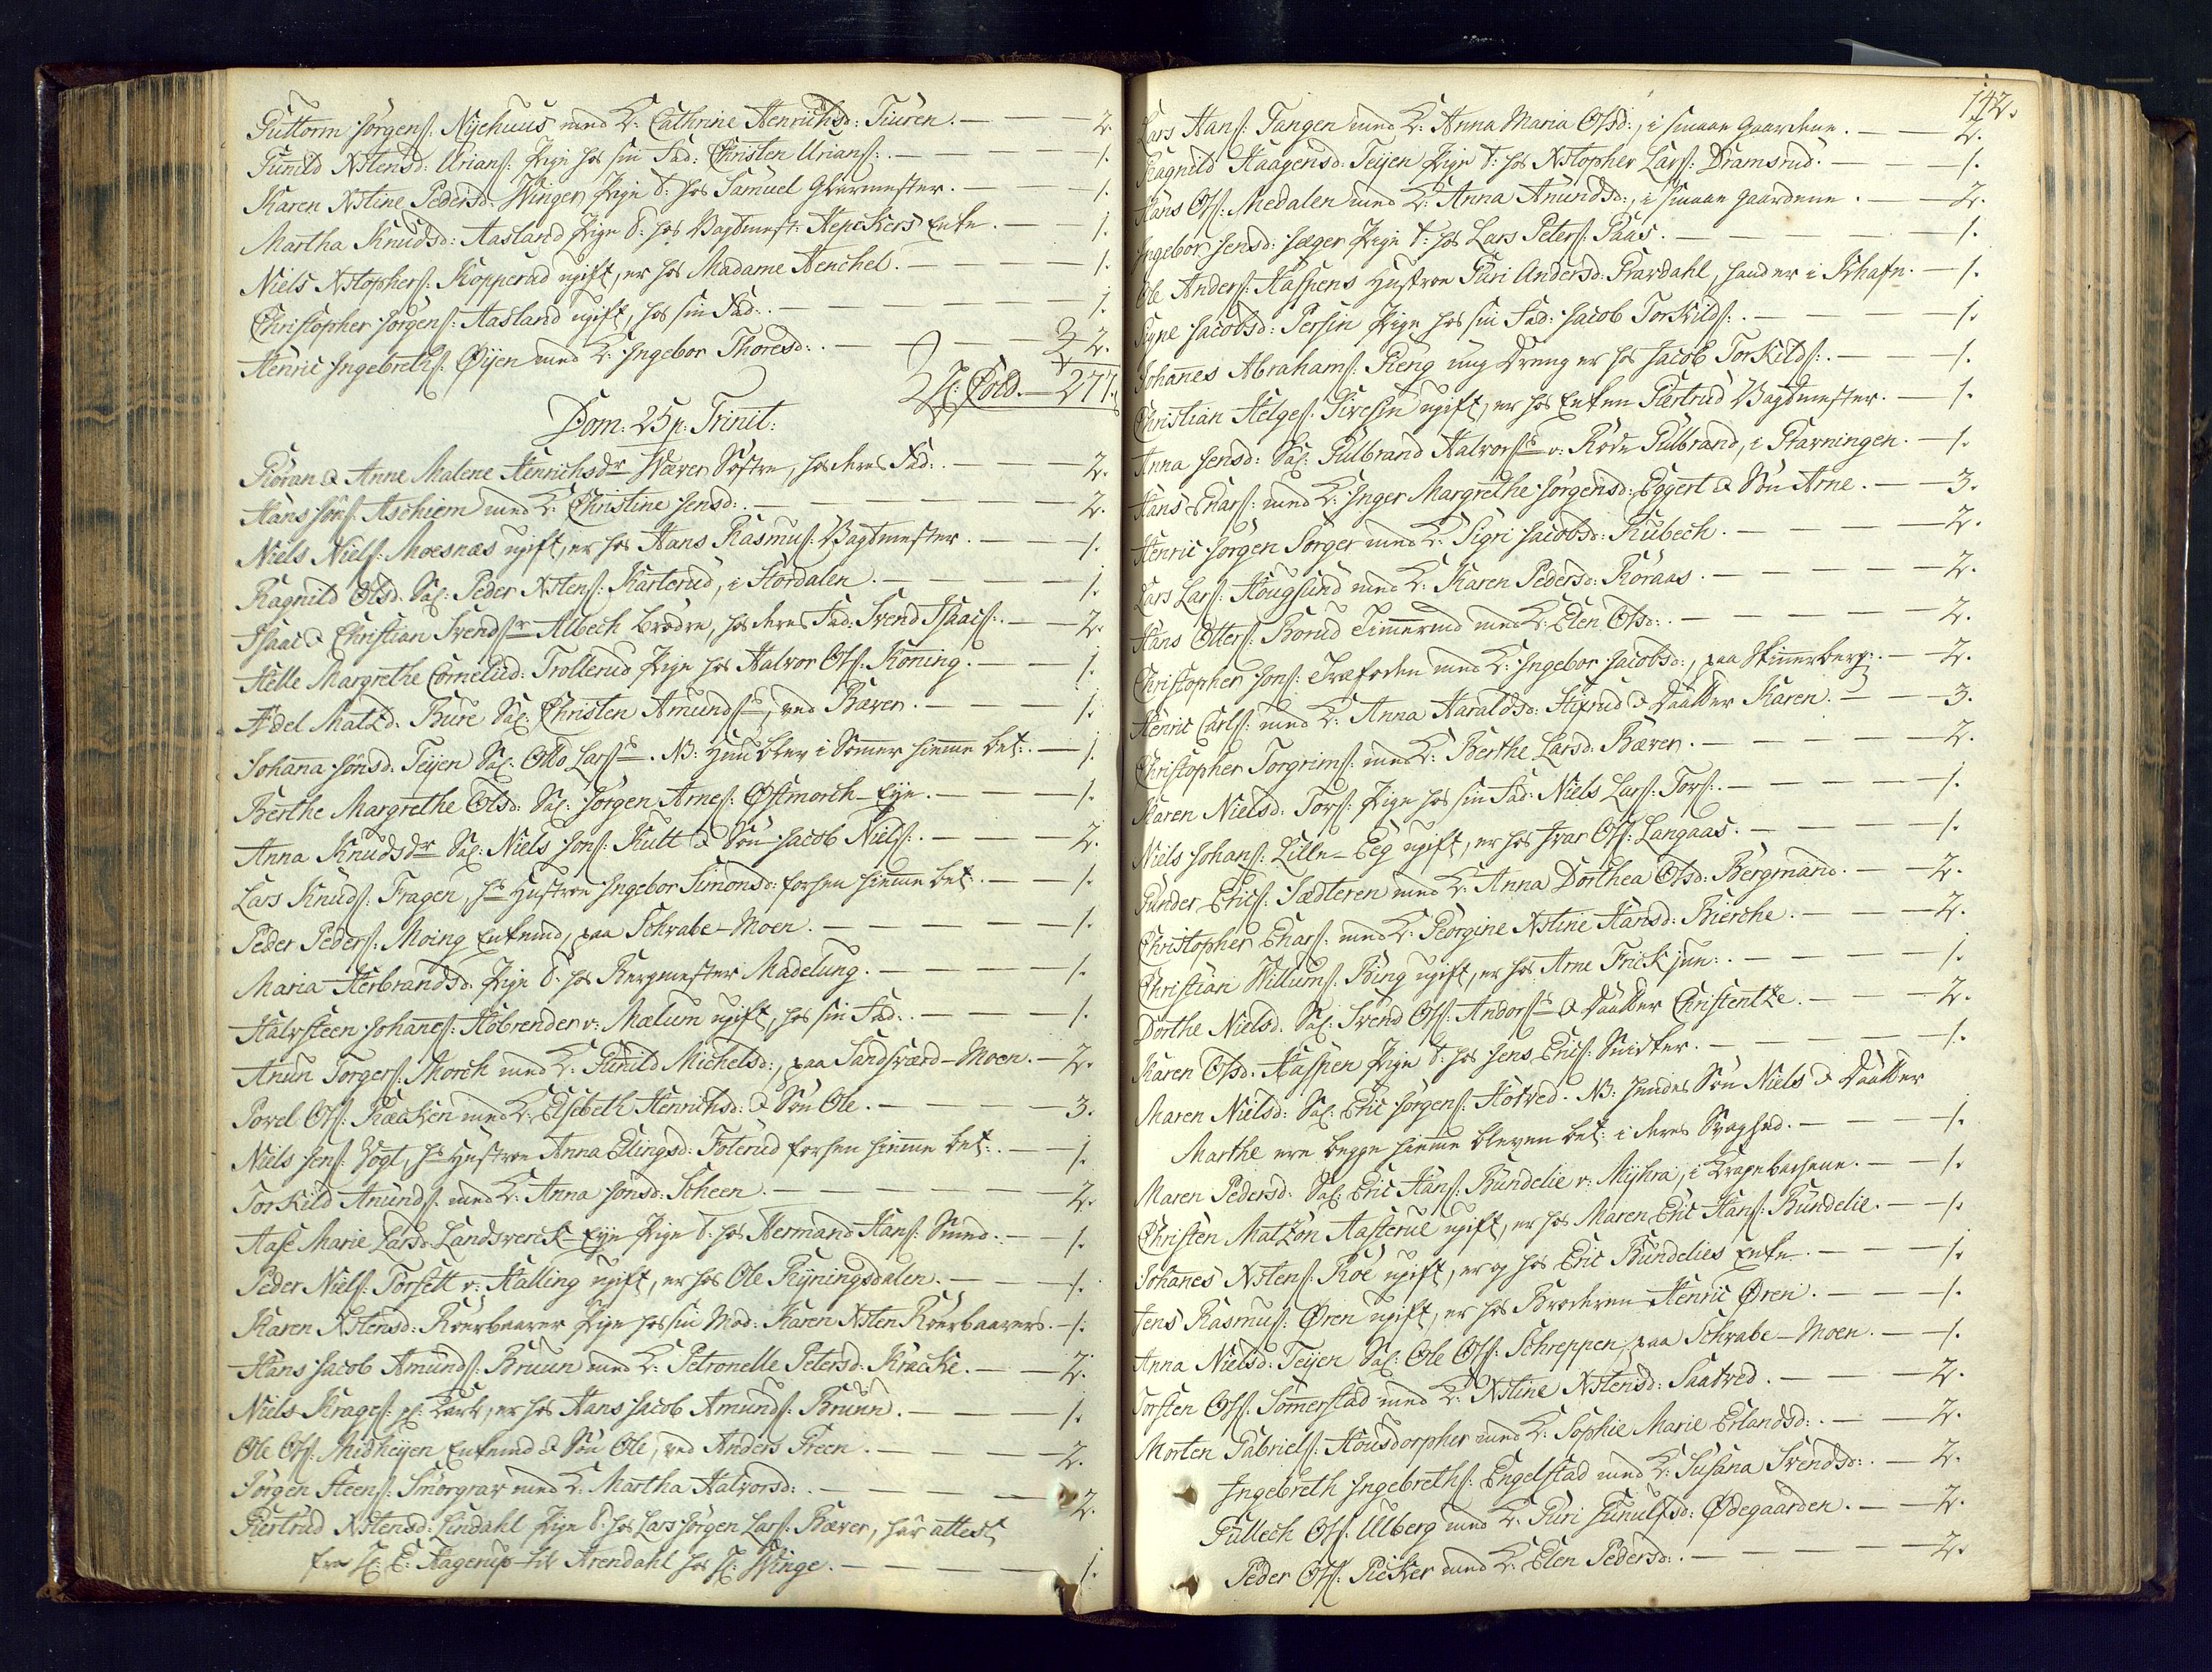 Guttorm Jørgens: Nyehuus med K: Cathrine Henrichsd: Tiuren. — 2.
Gunild Xstensd: Urians: Pige hos sin Fad: Christen Urians: — 1.
Karen Xstine Pedersd: Winger Pige t: hos Samuel Glarmester. — 1.
Martha Knudsd: Aasland Pige t: hos Vagtmest: Hepckers Enke. — 1.
Niels Xstophers: Kopperud ugift, er hos Madame Henchel. — 1.
Christopher Jørgens: Aasland ugift, hos sin Fad: — 1.
Henric Ingebreths: Øyen med K: Ingebor Thoresd: — 2.
H: Cold. — 277.
Dom: 25 p: Trinit:
Gøran & Anne Malene Henrichsdr Wæver Søstre, hos deres Fad: — 2.
Hans Jons: Aschiem med K: Christine Jensd: — 2.
Niels Niels: Moesnæs ugift, er hos Hans Rasmus: Vagtmester. — 1.
Ragnild Olsd: Sal: Peder Xstens: Karterud, i Hordalen. — 1.
Isaac & Christian Svendsr Albech brødre, hos deres Fad: Svend Isaacs: — 2.
Helle Margrethe Cornelisd: Trollerud Pige hos Halvor Ols: Konning. — 1.
Adel Matzd: Bure Sal: Christen Amunds, ved Bæver. — 1.
Johana Jonsd: Teijen Sal: Otto Lars. NB: Hun blev i Sommer hiemme bet: — 1.
Berthe Margrethe Olsd: Sal: Jørgen Arnes: Østmorck-Eye. — 1.
Anna Knudsdr Sal: Niels Jons: Kult & Søn Jacob Niels: — 2.
Lars Knuds: Fragen, hs Hustroe Ingebor Simonsd: forhen hiemme bet: — 1.
Peder Peders: Moing Enkemd, paa Schrabe-Moen. — 1.
Maria Herbrandsd: Pige t: hos Bergmester Madelung. — 1.
Halvsteen Johanes: Hobrender v: Mælum ugift, hos sin Fad: — 1.
Anun Torgers: Morch med K: Gunild Michelsd:, paa Sandsværd-Moen. — 2.
Povel Ols: Kaasen med K: Elsebeth Henrichsd: & Søn Ole. — 3.
Niels Jens: Vogt, hs Hustroe Anna Ellingsd: Foterud forhen hiemme bet: — 1.
Torkild Anunds: med K: Anna Jonsd: Scheen. — 2.
Aase Marie Larsd: Landsverck-Eye Pige t: hos Hermand Hans: Smed. — 1.
Peder Niels: Torsett v: Halling ugift, er hos Ole Ryningsdalen. — 1.
Karen Xstensd: Roerbaarer Pige hos sin Mod: Karen Xsten Roerbaarers. — 1.
Hans Jacob Amunds: Bruun med K: Petronelle Petersd: Kracke. — 2.
Niels Krages: gl: Karl, er hos Hans Jacob Amunds: Bruun. — 1.
Ole Ols: Midheyen Enkemd & Søn Ole, ved Anders Green. — 2.
Jørgen Steens: Smørgrav med K: Martha Halvorsd: — 2.
Giertrud Xstensd: Jindahl Pige t: hos Lars Jørgen Lars: Bæver, har attest
fra H: E: Hagerup til Arendahl hos H: Winge. — 1.
142.
Lars Hans: Tangen med K: Anna Maria Olsd:, i smaae Gaardene. — 2.
Ragnild Haagensd: Teijen Pige t: hos Xstopher Lars: Dramsrud. — 1.
Hans Ols: Medalen med K: Anna Anundsd:, i smaae Gaardene. — 2.
Ingebor Jensd: Jæger Pige t: hos Lars Peters: Paas. — 1.
Ole Anders: Haspens Hustroe Guri Andersd: Gravdahl, hand er i Khafn. — 1.
Signe Jacobsd: Persin Pige hos sin Fad: Jacob Torkilds: — 1.
Johannes Abrahams: Gieng ung Dreng er hos Jacob Torkilds: — 1.
Christian Helges: ugift, er hos Enken Giertrud Vagtmester. — 1.
Anna Jensd: Sal: Gulbrand Halvors v: Røde Gulbrand, i Stavningen. — 1.
Hans Enars: med K: Inger Margrethe Jørgensd: Eggert & Søn Arne. — 3.
Henric Jørgen Sorger med K: Sigri Jacobsd: Kubech. — 2.
Lars Lars: Hougsund med K: Karen Pedersd: Roraas. — 2.
Hans Otters: Borud Timmermd med K: Elen Olsd: — 2.
Christopher Jons: Træfoden med K: Ingebor Jacobsd:, paa Skinnerberg: — 2.
Henric Carls: med K: Anna Haraldsd: Stixrud & Daatter Karen. — 3.
Christopher Torgrims: med K: Berthe Larsd: Bæver. — 2.
Karen Nielsd: Tors: Pige hos sin Fad: Niels Lars: Tors: — 1.
Niels Johans: Lille-Eeg ugift, er hos Ivar Ols: Langaas. — 1.
Gunder Erics: Sædteren med K: Anna Dorthea Olsd: Bergmand. — 2.
Christopher Enars: med K: Georgine Xstine Hansd: Bierche. — 2.
Christian Willums: Bing ugift, er hos Arne Frick jun: — 1.
Dorthe Nielsd: Sal: Svend Ols: Andors & Daatter Christentze. — 2.
Karen Olsd: Haspen Pige t: hos Jens Erics: Snidker. — 1.
Maren Nielsd: Sal: Eric Jørgens: Hotved. NB: hendes Søn Niels & Daatter
Marthe ere begge hiemme bleven bet: i deres Svaghed. — 1.
Maren Pedersd: Sal: Eric Hans: Bundelie v: Myhra, i Kragebachene. — 1.
Christen Matzøn Aasterud ugift, er hos Maren Eric Hans: Bundelie. — 1.
Johanes Xstens: Roe ugift, er og hos Eric Bundelies Enke. — 1.
Jens Rasmus: Øren ugift, er hos Broderen Henric Øren. — 1.
Anna Nielsd: Teijen Sal: Ole Ols: Schreppen, paa Schrabe-Moen. — 1.
Torsten Ols: Sommerstad med K: Xstine Xstensd: Saatved. — 2.
Morten Gabriels: Housdorpher med K: Sophie Marie Erlandsd: — 2.
Ingebreth Ingebreths: Engelstad med K: Susana Svendsd: — 2.
Gullech Ols: Ulberg med K: Guri Gunulfsd: Ødegaarden. — 2.
Peder Ols: Giecker med K: Elen Pedersd: — 2.